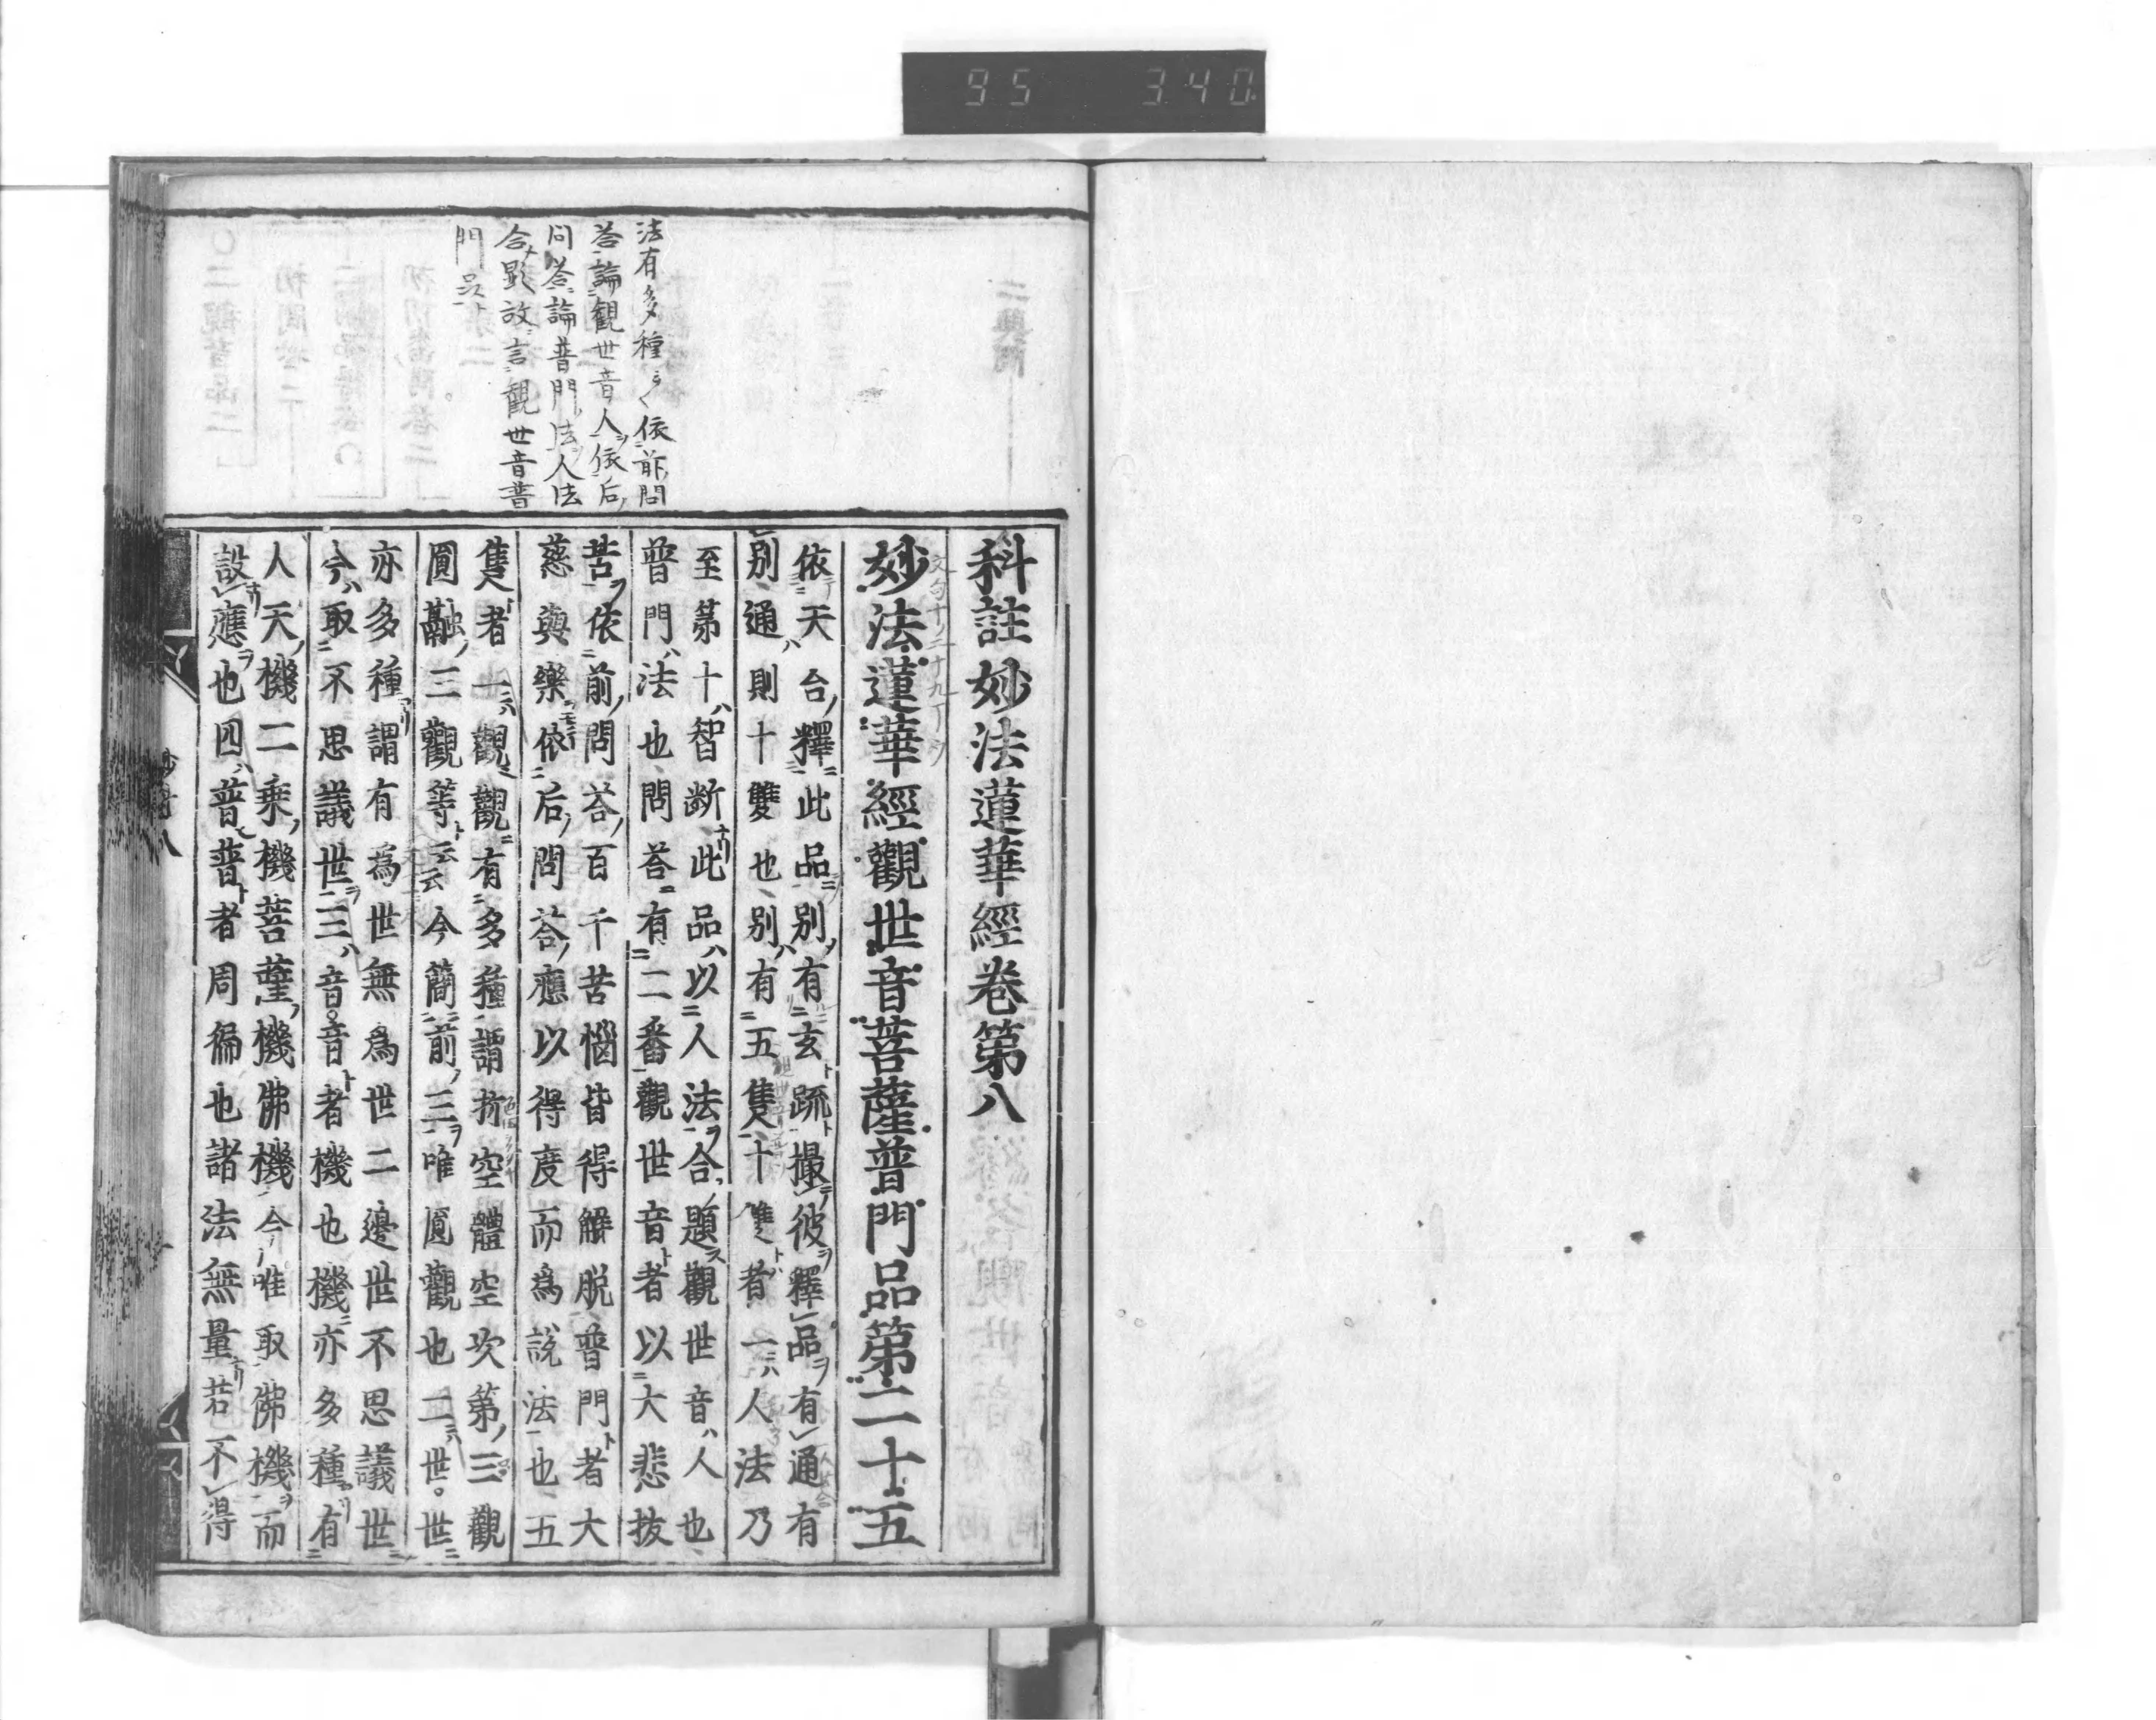 95 340
科註妙法蓮華經卷第八
妙法蓮華經觀世音菩薩普門品第二十五
依天台釋此品別有玄疏撮彼釋品有通有
別通則十雙也別有五隻十雙者一人法乃
至第十智斷此品以人法合題觀世音人也
普門法也問荅有二番觀世音者以大悲拔
苦依前問荅百千苦惱皆得解脱普門者大
慈與樂依后問荅應以得度而爲說法也五
隻者一觀觀有多種謂析空體空次第三觀
圓融三觀等云云今簡前三唯圓觀也二世世
亦多種謂有爲世無爲世二邊世不思議世
今取不思議世三音音者機也機亦多種有
人天機二乘機菩薩機佛機今唯取佛機而
設應也四普普者周徧也諸法無量若不得
法有多種〻〻依前問
荅論觀世音人依后
問荅論普門法人法
合顯故言觀世音普
門品